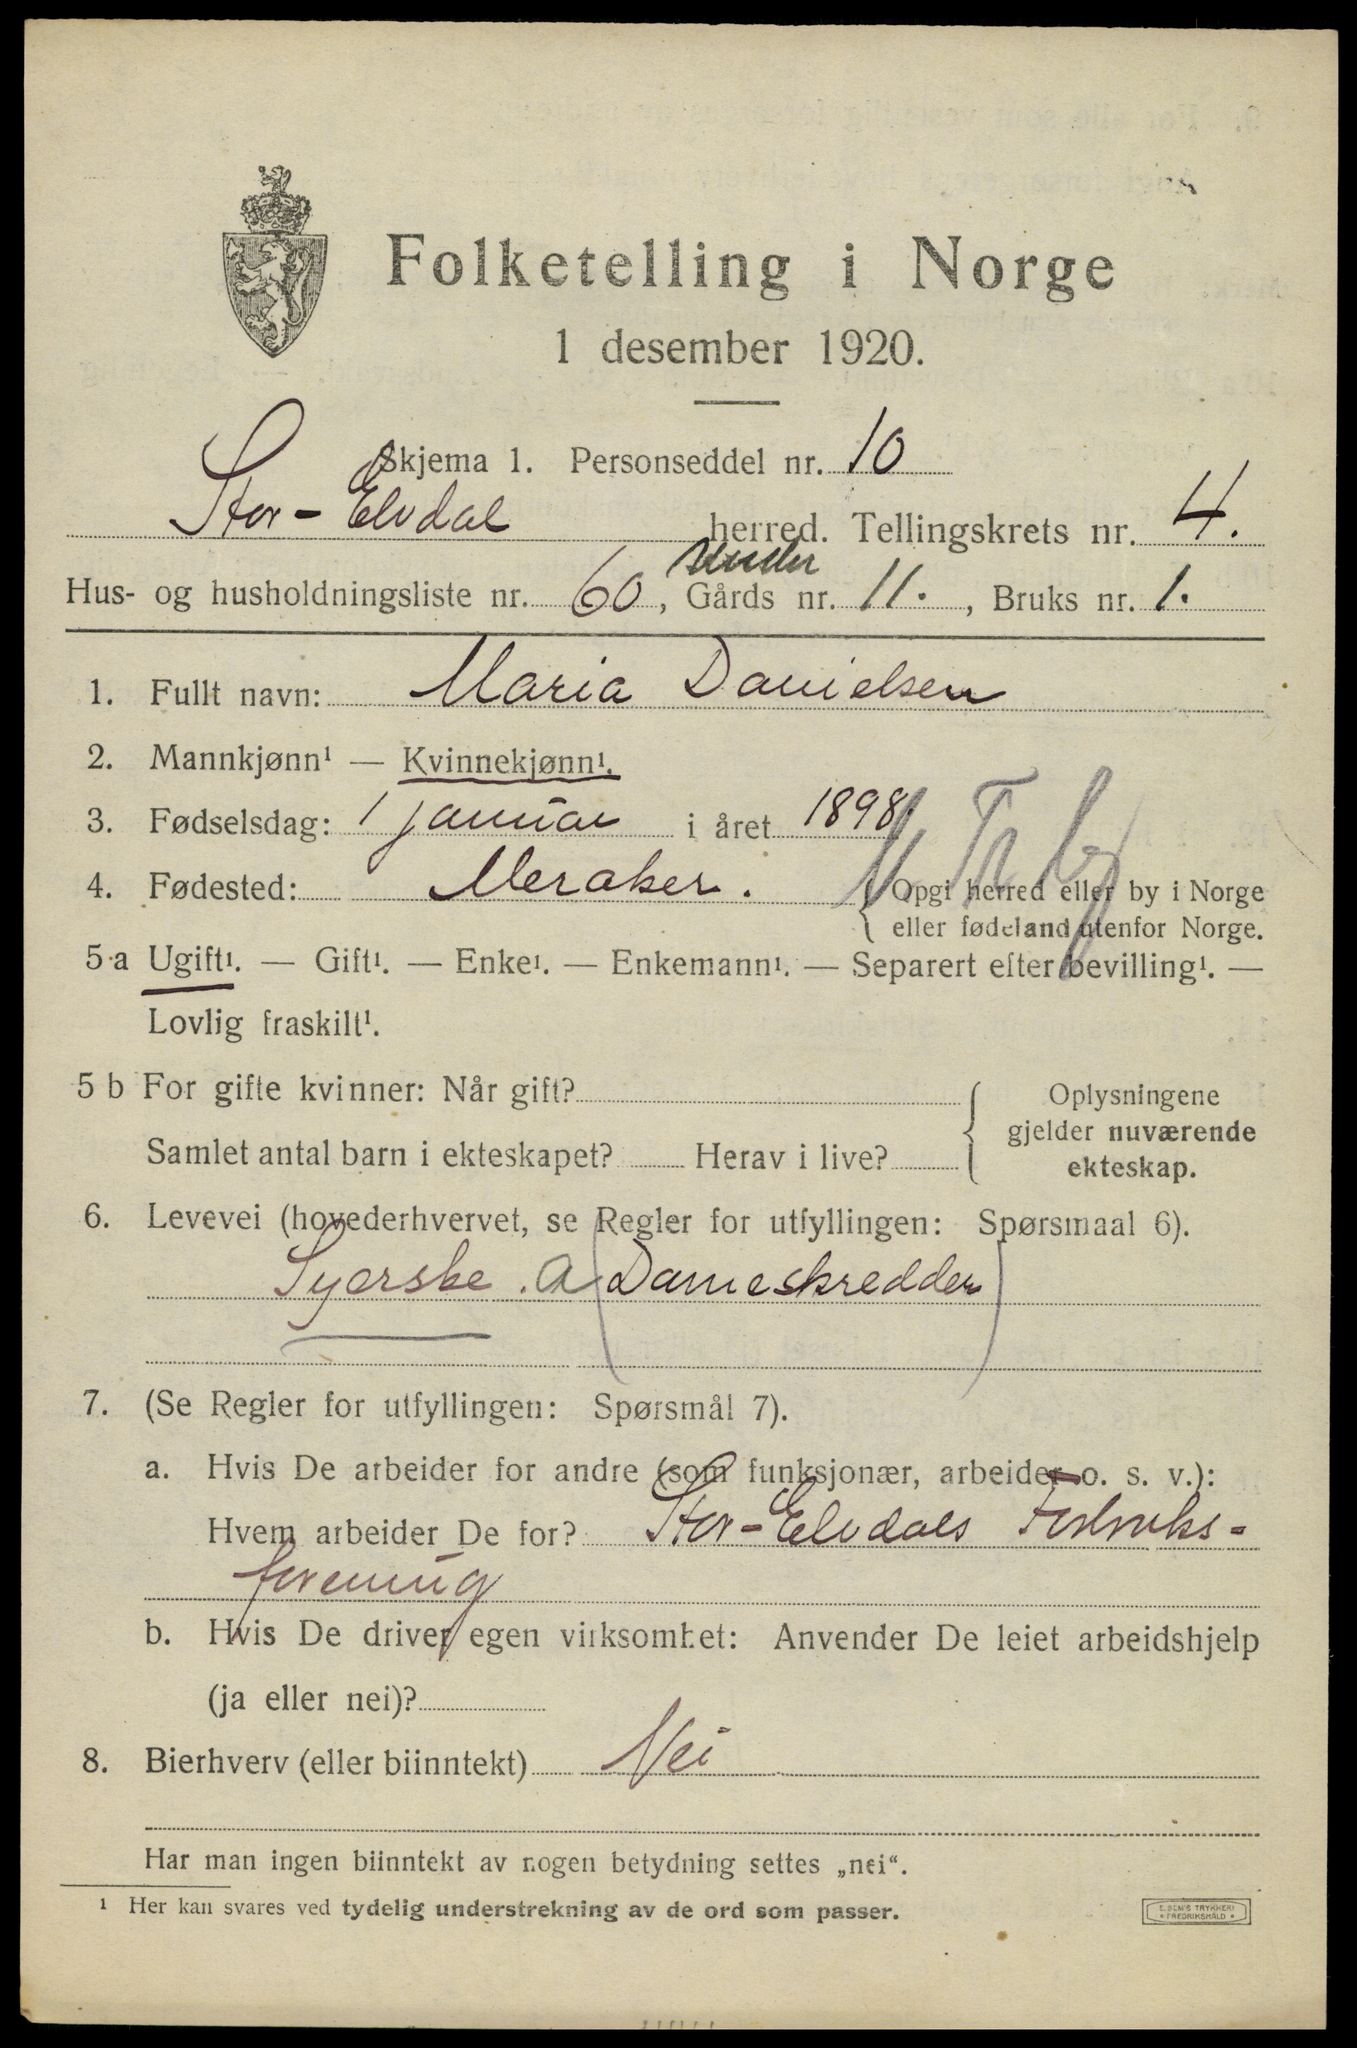 Folketelling i Norge
1 desember 1920.
Skjema 1. Personseddel nr. 10
Stor-Elvdal herred. Tellingskrets nr. 4.
under
Hus- og husholdningsliste nr. 60, Gårds nr. 11., Bruks nr. 1.
1. Fullt navn: Maria Danielsen
2. Mannkjønn¹ — Kvinnekjønn¹.
3. Fødselsdag: 1 januar i året 1898
4. Fødested: Meraker. { Opgi herred eller by i Norge
eller fødeland utenfor Norge.
5 a Ugift¹. — Gift¹. — Enke¹. — Enkemann¹. — Separert efter bevilling¹. —
Lovlig fraskilt¹.
5 b For gifte kvinner: Når gift? { Oplysningene
gjelder nuværende
Samlet antal barn i ekteskapet? Herav i live? ekteskap.
6. Levevei (hovederhvervet, se Regler for utfyllingen: Spørsmaal 6).
Syerske. a (Dameskredder)
7. (Se Regler for utfyllingen: Spørsmål 7).
a. Hvis De arbeider for andre (som funksjonær, arbeider o. s. v.):
Hvem arbeider De for? Stor-Elvdals Forbruks-
forening
b. Hvis De driver egen virksomhet: Anvender De leiet arbeidshjelp
(ja eller nei)?
8. Bierhverv (eller biinntekt) Nei
Har man ingen biinntekt av nogen betydning settes „nei“.
¹ Her kan svares ved tydelig understrekning av de ord som passer.
E. SEM'S TRYKKERI
• FREDRIKSHALD •